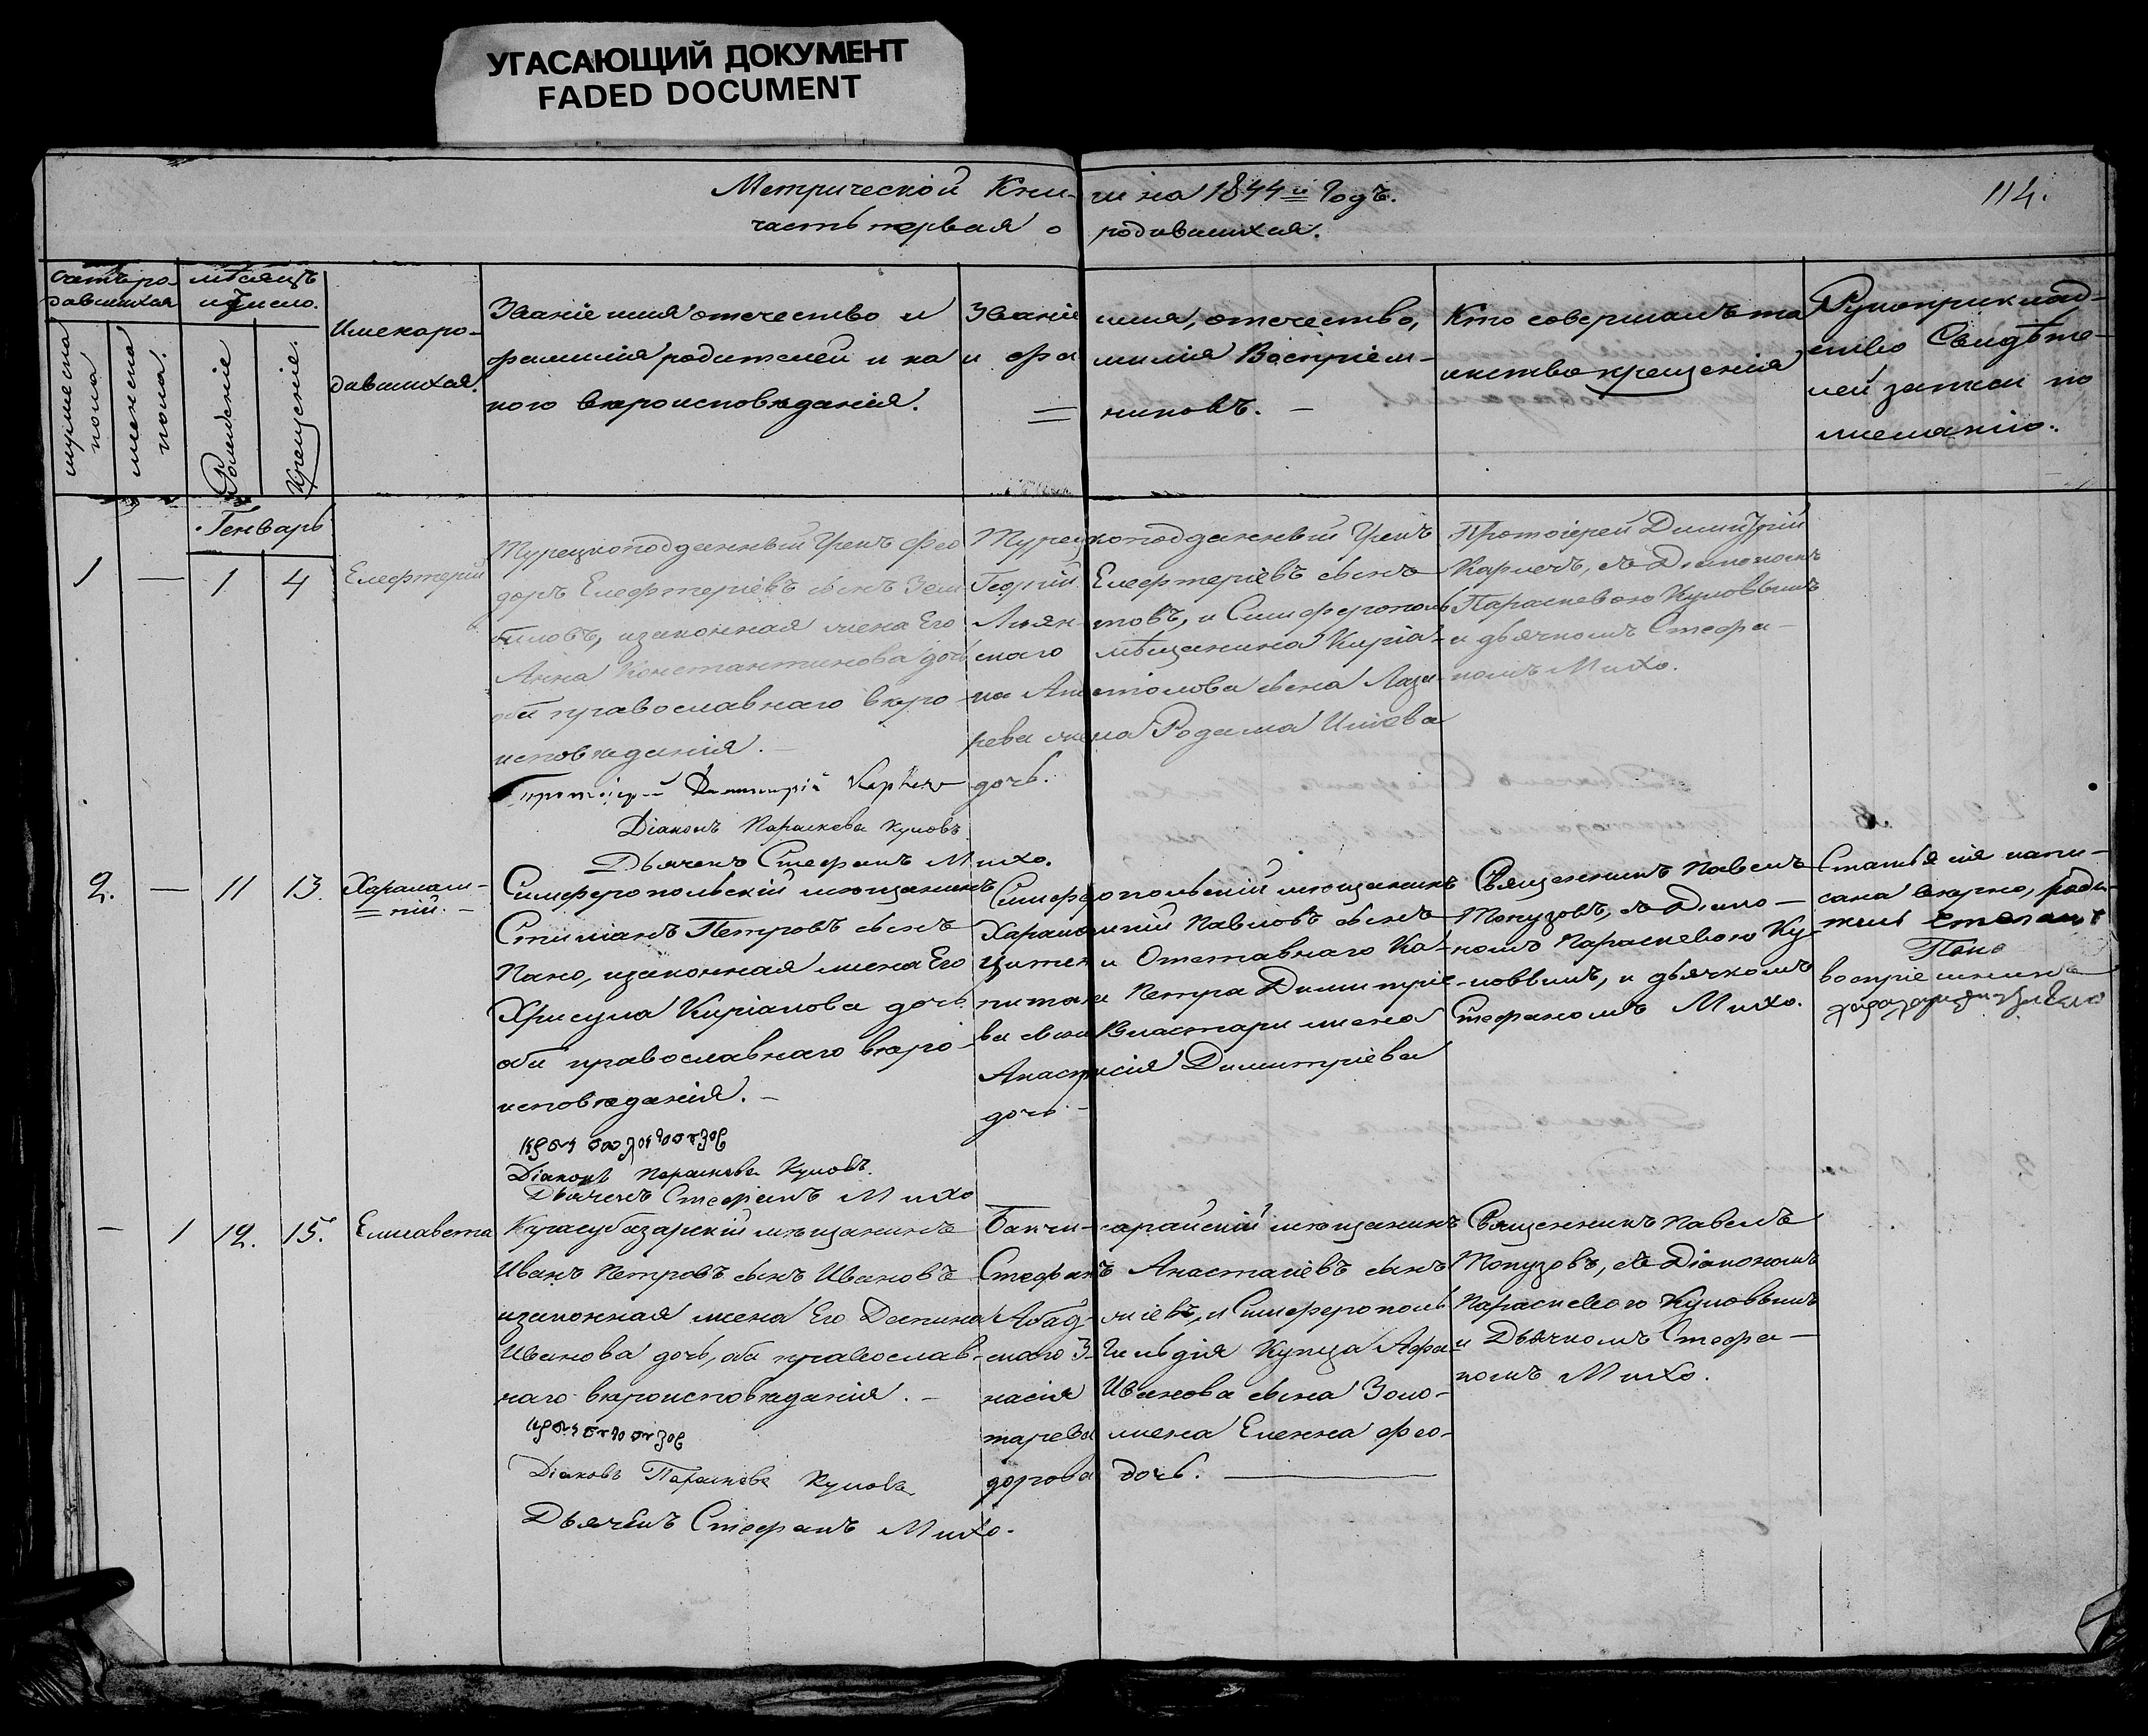 УГАСАЮЩИЙ ДОКУМЕНТ
FADED DOCUMENT
Метрической Кни-ги на 1844й Годъ.
114.
часть первая о родившихся.
Счетъ ро-
дившихся
мѣсяцъ
и число.
мужеска
пола
женска
пола.
Рожденіе
Крещеніе.
Имена ро-
дившихся.
Званіе имя отечество и
фамилія родителей и ка
кого вѣроисповѣданія.
Званіе имя, отечество,
и фамилія Воспріем-
никовъ.
Кто совершалъ та
инство крещенія
Рукоприклад-
ство Свидѣте-
лей записи по
желанію.
Генварь
1 — 1 4
Елефтерій
Турецкоподданный Грекъ Фео
доръ Елефтеріевъ сынъ
изаконная жена Его
Анна Константинова дочь
оба православнаго вѣро-
исповѣданія.
Протоіерей Димитрій
Діаконъ Параскева Куповъ
Дьячекъ Стефанъ Михо.
Турецкоподданный Грекъ
Георгій Елефтеріевъ сынъ
и Симферополь
скаго мѣщанина Киріа-
ка Апостолова сына Лаза-
рева жена Родама Иліева
дочь.
Протоіерей Димитрій
съ Діакономъ
Параскевою Куповымъ
и дьячкомъ Стефа-
номъ Михо.
2. — 11 13.
Харалам-
пій.
Симферопольскій мѣщанинъ
Стиліанъ Петровъ сынъ
Пано, изаконная жена Его
Хрисула Киріакова дочь
оба православнаго вѣро-
исповѣданія.
Діаконъ Параскева Куповъ.
Дьячекъ Стефанъ Михо
Симферопольскій мѣщанинъ
Харалампій Павловъ сынъ
и Отставнаго Ка-
питана Петра Димитріе-
ва сына Властари жена
Анастасія Димитріева
дочь.
Священникъ Павелъ
Топузовъ, съ Діако-
номъ Параскевою Ку-
повымъ, и дьячкомъ
Стефаномъ Михо.
Статья сія напи-
сана вѣрно,
Пано
— 1 12. 15.
Елисавета
Карасубазарскій мѣщанинъ
Иванъ Петровъ сынъ Ивановъ
изаконная жена Его Деспина
Иванова дочь, оба православ-
наго вѣроисповѣданія.
Діаконъ Параскева Куповъ
Дьячекъ Стефанъ Михо.
Бахчи-сарайскій мѣщанинъ
Стефанъ Анастасіевъ сынъ
и Симферополь
скаго 3й Гильдія Купца Афа-
насія Иванова сына Золо-
тарева жена Елена Фео-
дорова дочь.
Священникъ Павелъ
Топузовъ, съ Діакономъ
Параскевою Куповымъ
и Дьячкомъ Стефа-
номъ Михо.